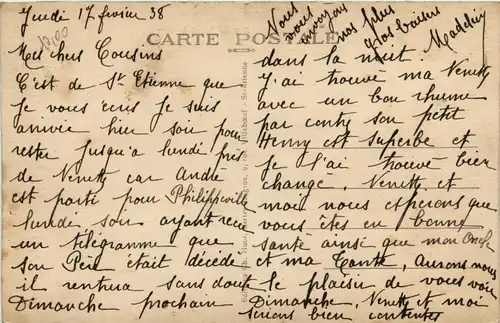 Jeudi 17 février 38
CARTE POSTALE
Mes chers Cousins
C'est de St Etienne que
je vous écris je suis
arrivée hier soir pour
rester jusqu'a lundi près
de Ninette car André
est parti pour Philippeville
lundi soir ayant reçu
un télégramme que
son Père était décédé
il rentrera sans doute
Dimanche prochain
dans la nuit
j'ai trouvé ma Ninette
avec un bon rhume
par contre son petit
Henry est superbe et
je l'ai trouvé bien
changé. Ninette et
moi nous espérons que
vous êtes en bonne
santé ainsi que mon Oncle
et ma Tante. Aurons nous
le plaisir de vous voir
Dimanche, Ninette et moi
serions bien contentes
Nous
vous
envoyons
nos plus
gros baisers
Madeleine